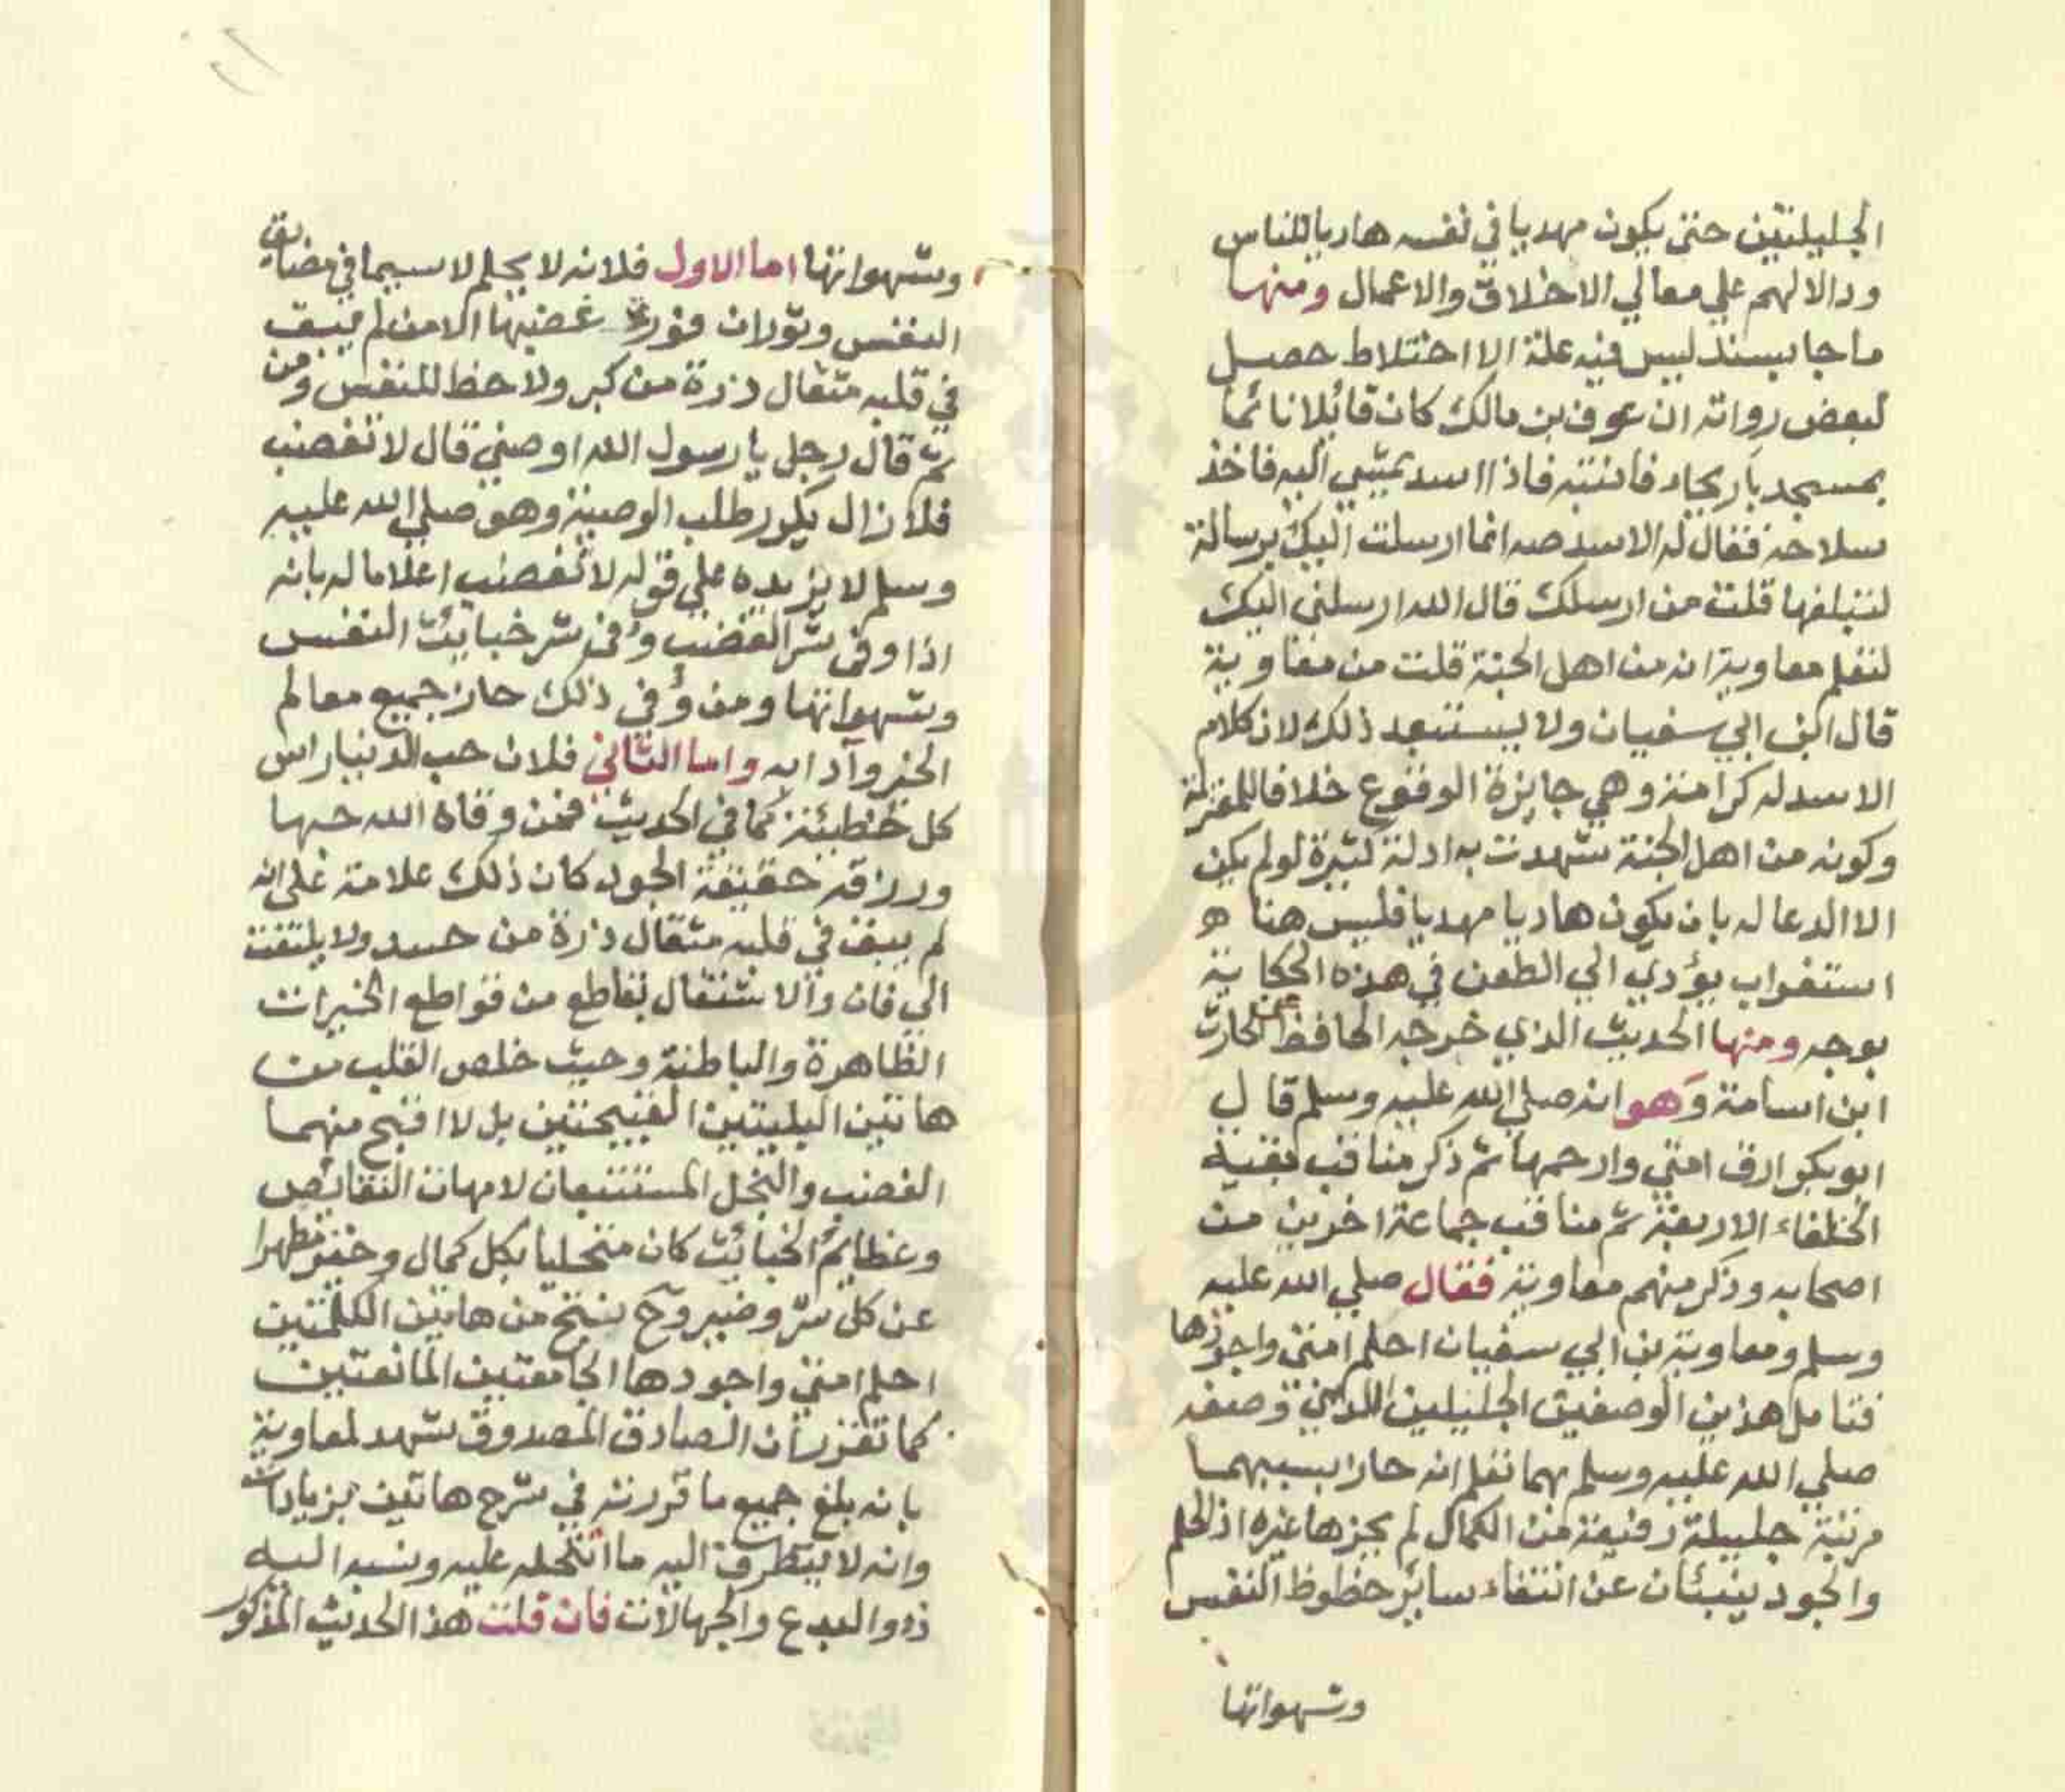 الجليلتين حتى يكون مهديا في نفسه هاديا للناس
ودالا لهم علي معالي الاخلاق والاعمال ومنها
ما جا بسند ليس فيه علة الا اختلاط حصل
لبعض رواته ان عوف بن مالك كان قائلا نائما
بمسجد باريحاء فانتبه فاذا اسد يمشي اليه فاخذ
سلاحه فقال له الاسد صه انما ارسلت اليك برسالة
لتبلغها قلت من ارسلك قال الله ارسلني اليك
لتعلم معاوية انه من اهل الجنة قلت من معاوية
قال ابن ابي سفيان ولا يستبعد ذلك لان كلام
الاسد له كرامة وهي جايزة الوقوع خلافا للمعتزلة
وكونه من اهل الجنة شهدت به ادلة كثيرة لو لم يكن
الا الدعا له بان يكون هاديا مهديا فليس هنا ه
استغراب يؤدي الي الطعن في هذه الحكاية
بوجه ومنها الحديث الذي خرجه الحافظ الحارث
ابن اسامة وهو انه صلي الله عليه وسلم قال
ابو بكر ارق امتي وارحمها ثم ذكر مناقب بقية
الخلفاء الاربعة ثم مناقب جماعة اخرين من
اصحابه وذكر منهم معاوية فقال صلي الله عليه
وسلم ومعاوية بن ابي سفيان احلم امتي واجودها
فتامل هذين الوصفين الجليلين اللذين وصفه
صلي الله عليه وسلم بهما تعلم انه حاز بسببهما
مرتبة جليلة رفيعة من الكمال لم يحزها غيره اذ الحلم
والجود ينبئان عن انتفاء ساير حظوظ النفس
وشهواتها
وشهواتها اما الاول فلانه لا يحلم لا سيما في مضايق
النفس وثوران فورة غضبها الا من لم يبق
في قلبه مثقال ذرة من كبر ولا حظ للنفس ومن
ثم قال رجل يا رسول الله اوصني قال لا تغضب
فلا زال يكرر طلب الوصية وهو صلي الله عليه
وسلم لا يزيده علي قوله لا تغضب اعلاما له بانه
اذا وقي شر الغضب وقي شر خبايث النفس
وشهواتها ومن وقي ذلك حاز جميع معالم
الخير وآدابه واما الثاني فلان حب الدنيا راس
كل خطيئة كما في الحديث فمن وقاه الله حبها
ورزقه حقيقة الجود كان ذلك علامة على انه
لم يبق في قلبه مثقال ذرة من حسد ولا يلتفت
الي فان والاشتغال بقاطع من قواطع الخيرات
الظاهرة والباطنة وحيث خلص القلب من
هاتين البليتين القبيحتين بل لا اقبح منهما
الغضب والبخل المستتبعان لامهات النقايص
وعظايم الخبائث كان متحليا بكل كمال وخير مطهرا
عن كل شر وضير وح ينتج من هاتين الكلمتين
احلم امتي واجودها الجامعتين المانعتين
كما تقرر ان الصادق المصدوق شهد لمعاوية
بانه بلغ جميع ما قررته في شرح هاتين بزيادات
وانه لا يتطرق اليه ما انتحله عليه ونسبه اليه
ذوو البدع والجهالات فان قلت هذا الحديث المذكور